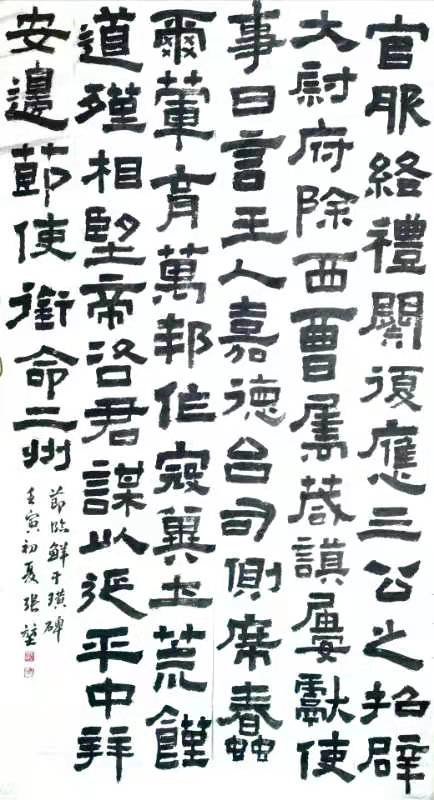 官服終禮闋復應三公之招辟
大尉府除西曹屬葴謨屢獻使
事日言王人嘉德台司側席蠢
爾葷育萬邦作寇冀土荒饉
道殣相望帝咨君謀以延平中拜
安邊節使銜命二州
節臨鮮于璜碑
壬寅初夏張堃